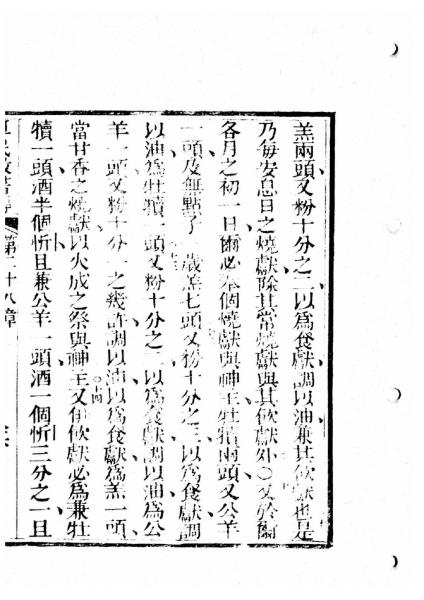 羔兩頭又粉十分之二以爲食獻調以油兼其飲獻也是
乃每安息日之燒獻除其常燒獻與其飲獻外○又於爾
各月之初一日爾必奉個燒獻與神主牡犢兩頭又公羊
一頭及無點了一歲羔七頭又粉十分之三以爲食獻調
以油爲牡犢一頭又粉十分之二以爲食獻調以油爲公
羊一頭又粉十分一之幾許調以油以爲食獻爲羔一頭
當甘香之燒獻以火成之祭與神主又伊飲獻必爲兼牡
犢一頭酒半個忻且兼公羊一頭酒一個忻三分之一且
第二十八章